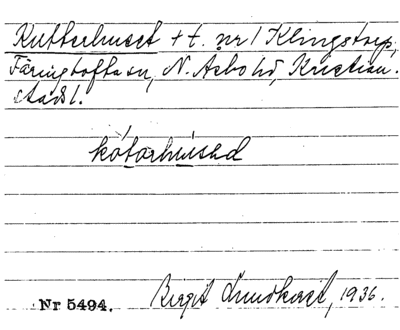 Kutterhuset tt. nr 1 Klingstorp,
Färingtofta sn, N. Åsbo hd, Kristian-
stads l.
kótorhùsəd
Birgit Lundkvist, 1936.
Nr 5494.